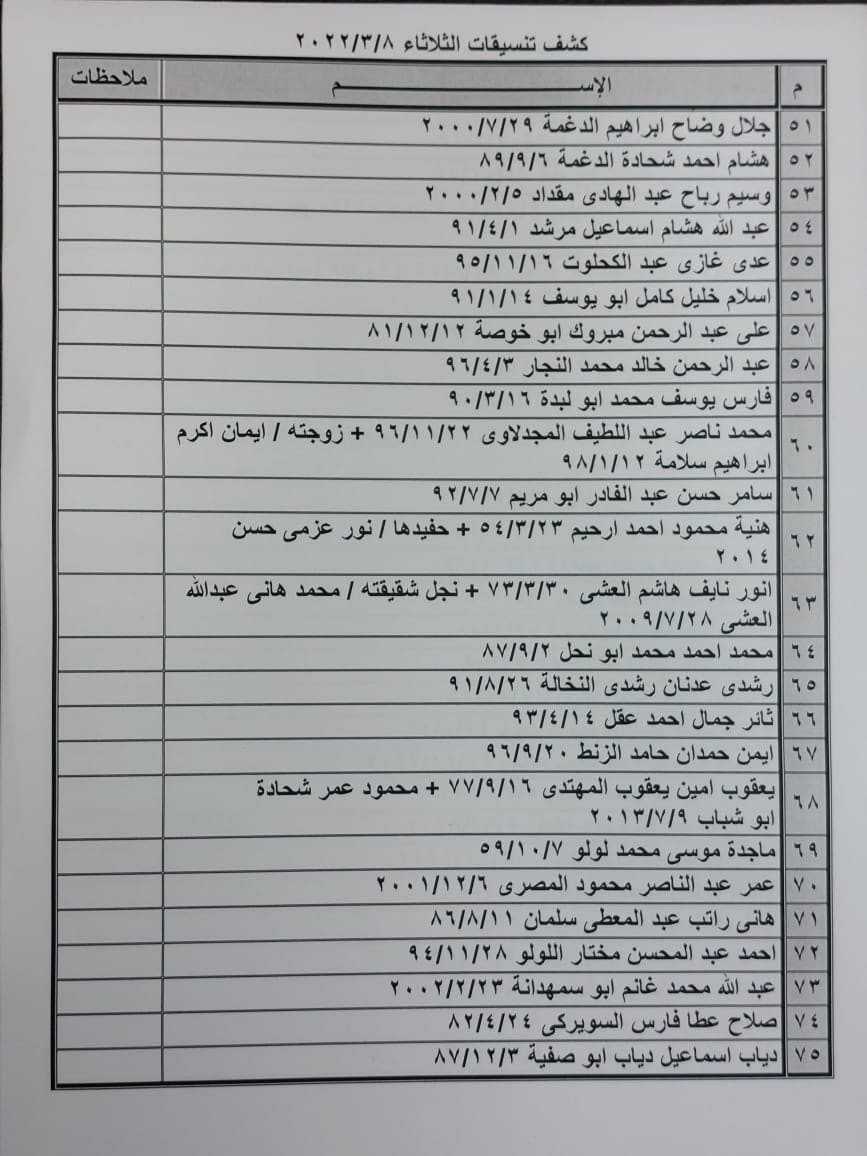 كشف تنسيقات الثلاثاء ٢٠٢٢/٣/٨
م الإســـــم ملاحظات
٥١ جلال وضاح ابراهيم الدغمة ٢٠٠٠/٧/٢٩
٥٢ هشام احمد شحادة الدغمة ٨٩/٩/٦
٥٣ وسيم رباح عبد الهادى مقداد ٢٠٠٠/٢/٥
٥٤ عبد الله هشام اسماعيل مرشد ٩١/٤/١
٥٥ عدى غازى عبد الكحلوت ٩٥/١١/١٦
٥٦ اسلام خليل كامل ابو يوسف ٩١/١/١٤
٥٧ على عبد الرحمن مبروك ابو خوصة ٨١/١٢/١٢
٥٨ عبد الرحمن خالد محمد النجار ٩٦/٤/٣
٥٩ فارس يوسف محمد ابو لبدة ٩٠/٣/١٦
٦٠ محمد ناصر عبد اللطيف المجدلاوى ٩٦/١١/٢٢ + زوجته / ايمان اكرم
ابراهيم سلامة ٩٨/١/١٢
٦١ سامر حسن عبد الفادر ابو مريم ٩٢/٧/٧
٦٢ هنية محمود احمد ارحيم ٥٤/٣/٢٣ + حفيدها / نور عزمى حسن
٢٠١٤
٦٣ انور نايف هاشم العشى ٧٣/٣/٣٠ + نجل شقيقته / محمد هانى عبدالله
العشى ٢٠٠٩/٧/٢٨
٦٤ محمد احمد محمد ابو نحل ٨٧/٩/٢
٦٥ رشدى عدنان رشدى النخالة ٩١/٨/٢٦
٦٦ ثائر جمال احمد عقل ٩٣/٤/١٤
٦٧ ايمن حمدان حامد الزنط ٩٦/٩/٢٠
٦٨ يعقوب امين يعقوب المهتدى ٧٧/٩/١٦ + محمود عمر شحادة
ابو شباب ٢٠١٣/٧/٩
٦٩ ماجدة موسى محمد لولو ٥٩/١٠/٧
٧٠ عمر عبد الناصر محمود المصرى ٢٠٠١/١٢/٦
٧١ هانى راتب عبد المعطى سلمان ٨٦/٨/١١
٧٢ احمد عبد المحسن مختار اللولو ٩٤/١١/٢٨
٧٣ عبد الله محمد غانم ابو سمهدانة ٢٠٠٢/٢/٢٣
٧٤ صلاح عطا فارس السويركى ٨٢/٤/٢٤
٧٥ دياب اسماعيل دياب ابو صفية ٨٧/١٢/٣